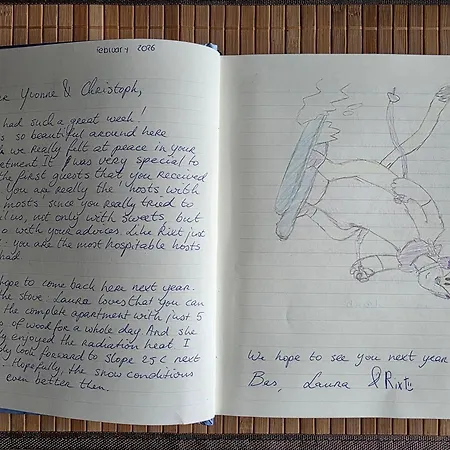 February 2026
Yvonne & Christoph,
had such a great week!
so beautiful around here
we really felt at peace in your
It was very special to
the first guests that you received
You are really the 'hosts with
mosts' since you really tried to
us, not only with sweets, but
with your advices. Like Rixt just
: you are the most hospitable hosts
had
hope to come back here next year.
the stove. Laura loves that you can
the complete apartment with just 5
of wood for a whole day. And she
enjoyed the radiation heat. I
look forward to slope 25C next
Hopefully, the snow conditions
even better then.
We hope to see you next year
Bas, Laura & Rixt